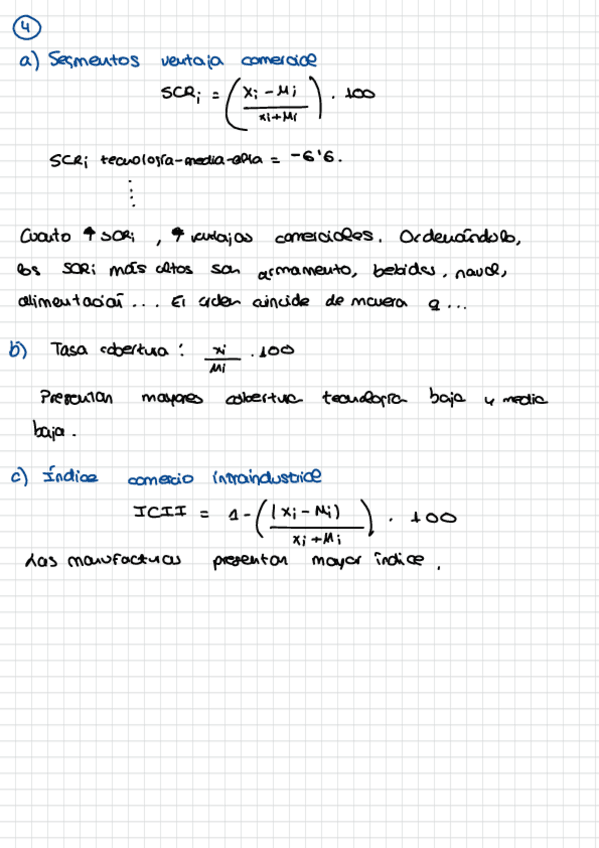 4
a) Segmentos ventaja comercial
SCRi = (xi - Mi / xi + Mi) . 100
SCRi tecnología-media-alta = -6'6.
⋮
Cuanto ↑ SCRi , ↑ ventajas comerciales. Ordenándolo,
los SCRi más altos son armamento, bebidas, naval,
alimentación ... El orden coincide de manera a ...
b) Tasa cobertura : xi / Mi . 100
Presentan mayores cobertura tecnología baja y media
baja.
c) Índice comercio intraindustrial
ICII = 1 - (|xi - Mi) / xi + Mi) . 100
Las manufacturas presentan mayor índice.